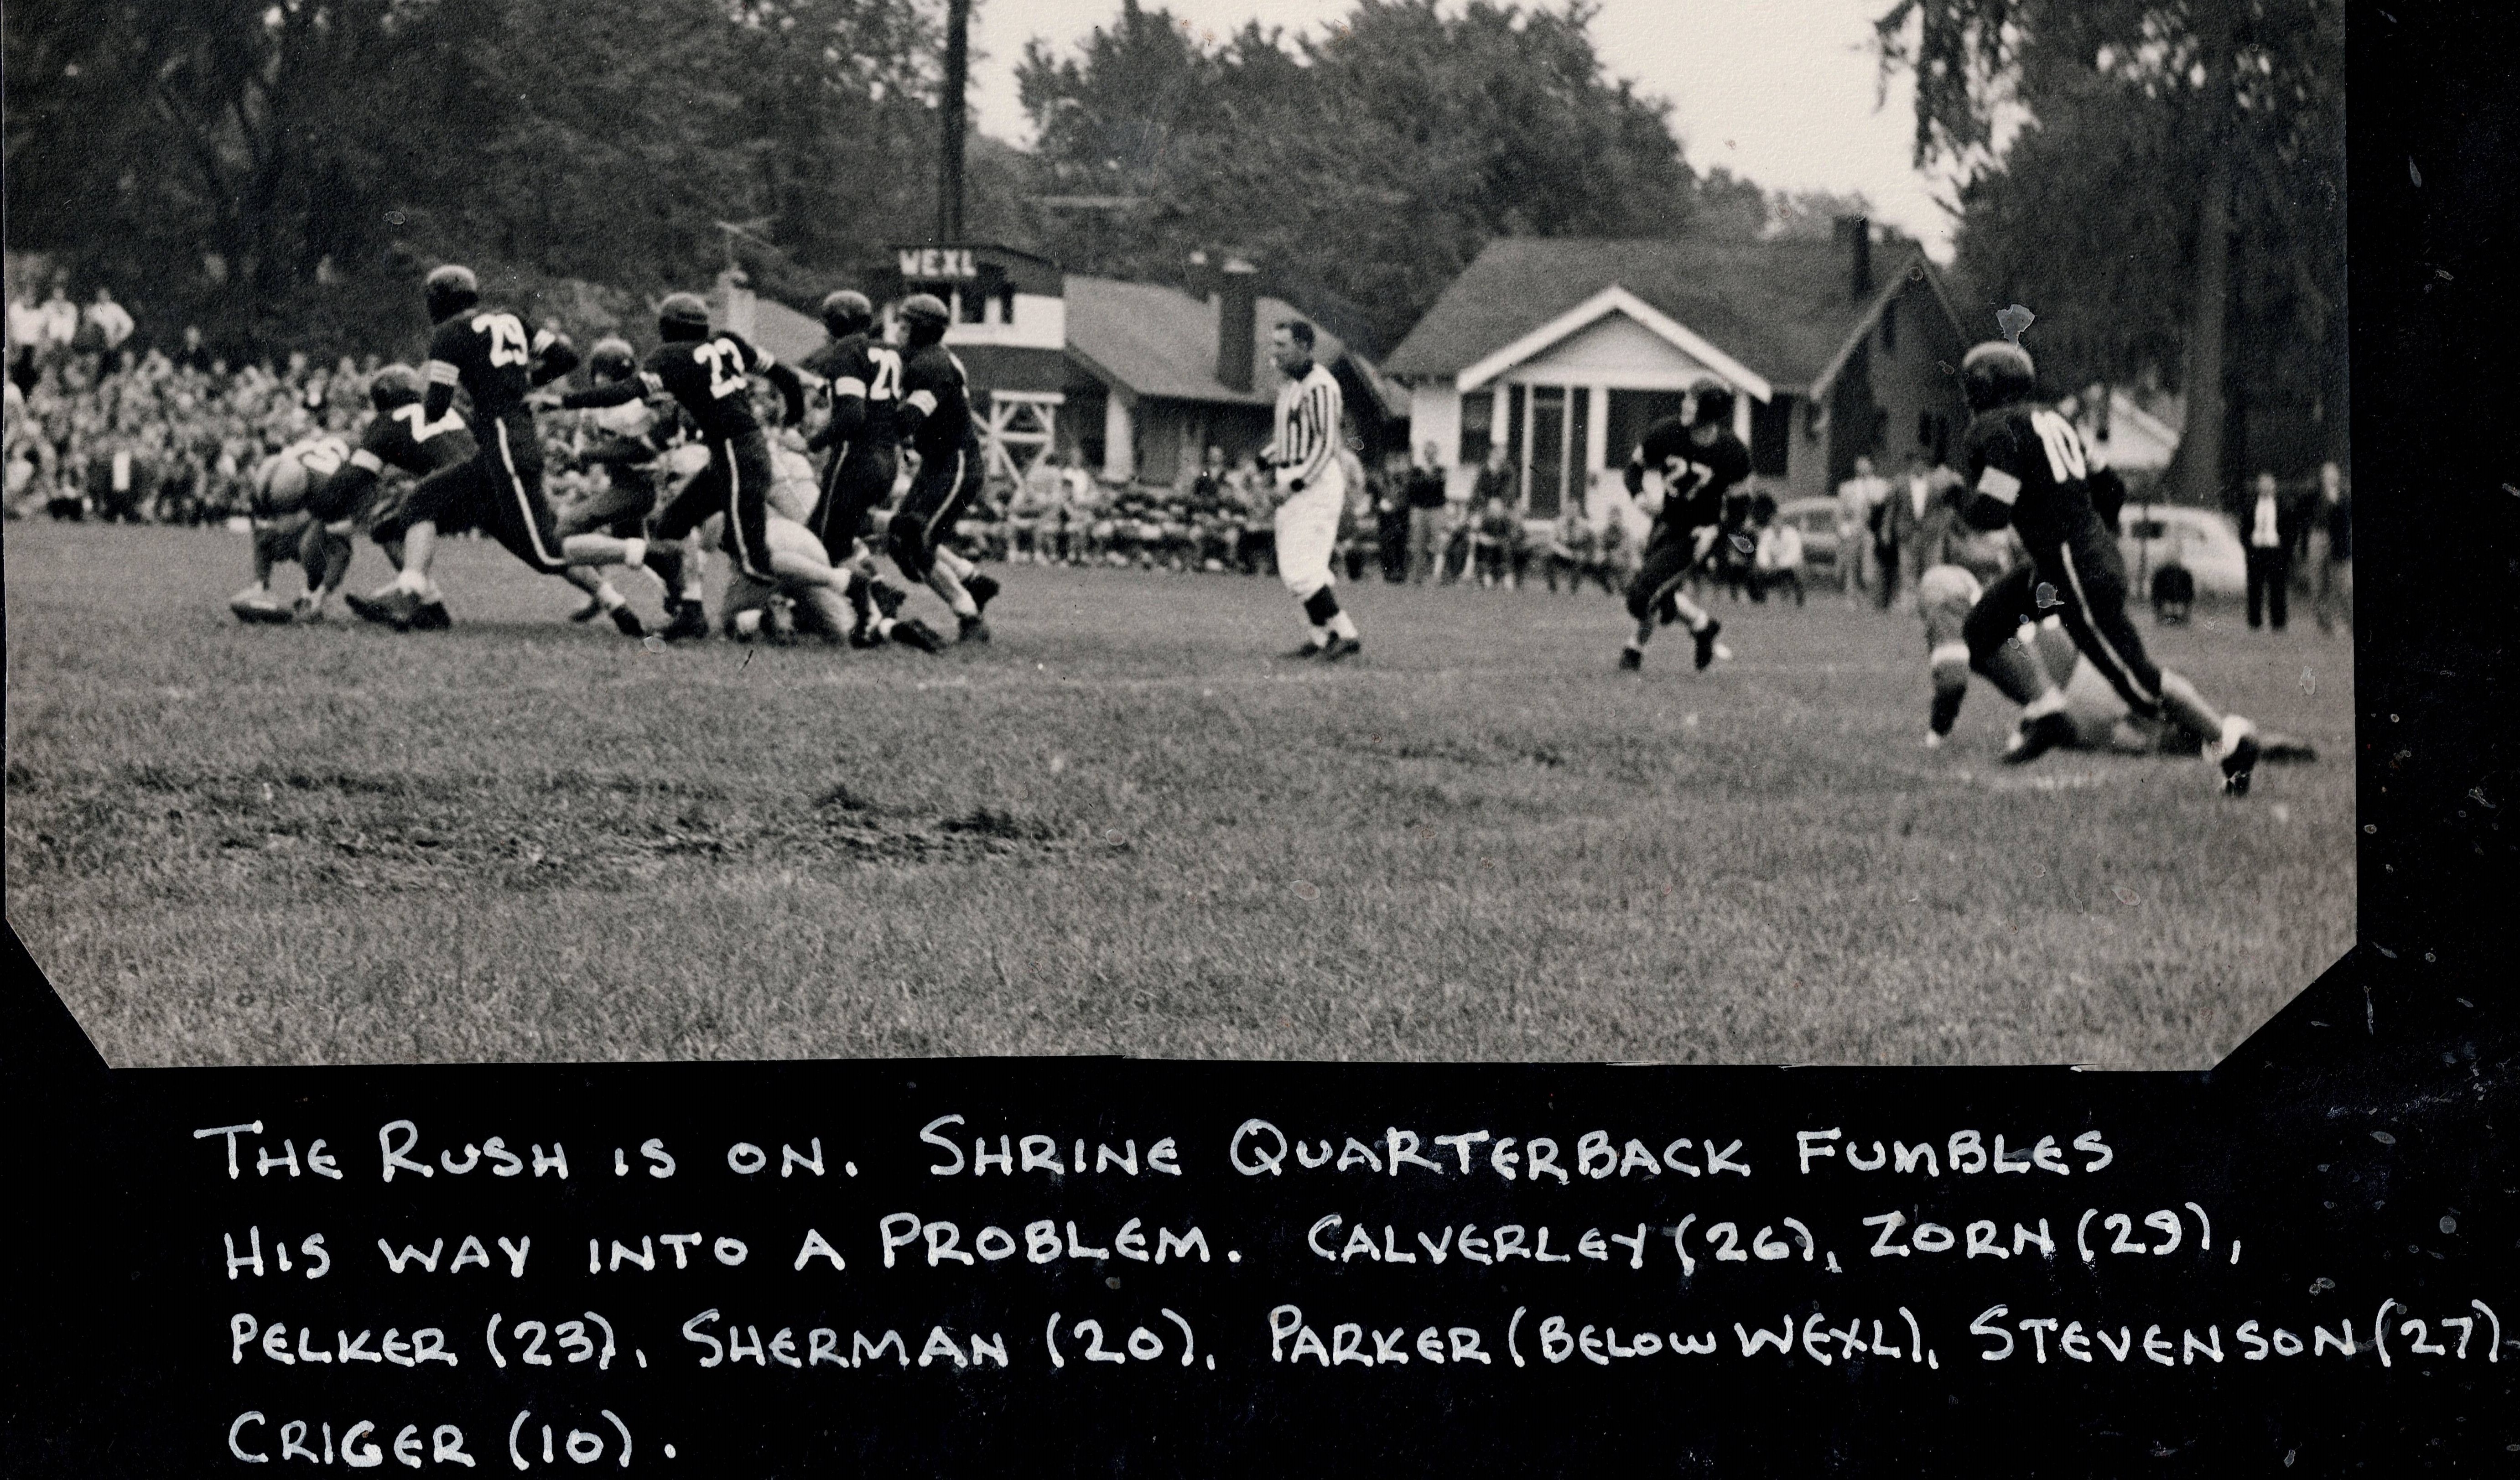 WEXL
29
23
20
27
10
THE RUSH IS ON. SHRINE QUARTERBACK FUMBLES
HIS WAY INTO A PROBLEM. CALVERLEY (26), ZORN (29),
PELKER (23), SHERMAN (20), PARKER (BELOW WEXL), STEVENSON (27)
CRIGER (10).